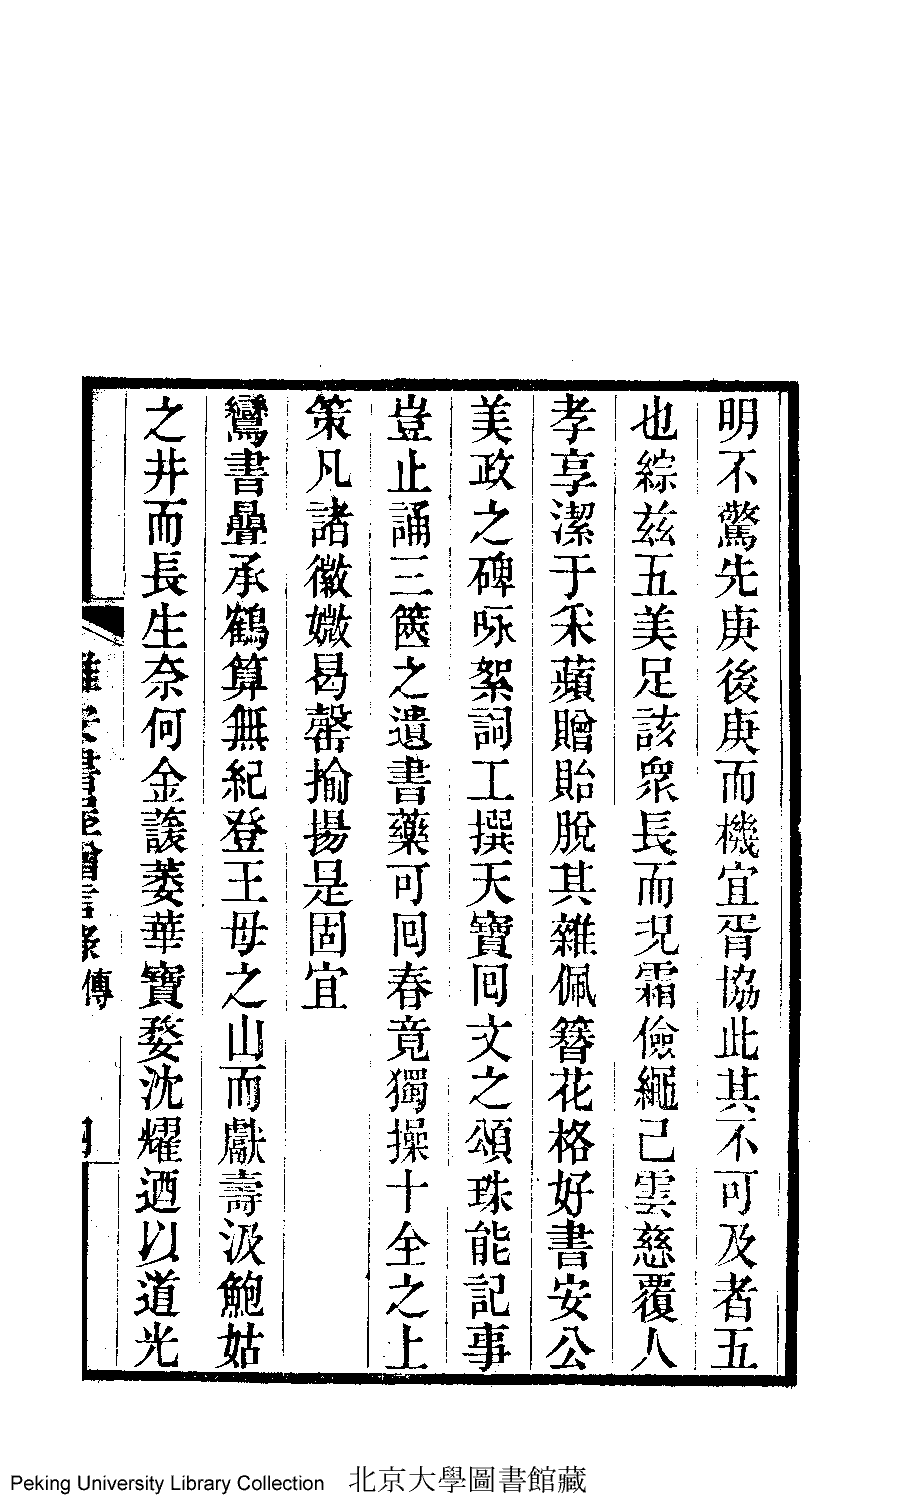 明不驚先庚後庚而機宜胥協此其不可及者五
也綜茲五美足該衆長而況霜儉繩己雲慈覆人
孝享潔于采蘋贈貽脫其雜佩簪花格好書安公
美政之碑咏絮詞工撰天寶囘文之頌珠能記事
豈止誦三篋之遺書藥可囘春竟獨操十全之上
策凡諸徽媺曷罄揄揚是固宜
鸞書疊承鶴算無紀登王母之山而獻壽汲鮑姑
之井而長生奈何金諼萎華寶婺沈耀迺以道光
傳
四
Peking University Library Collection 北京大學圖書館藏